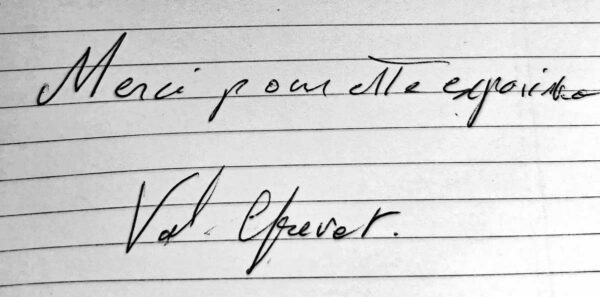 Merci pour cette expérience
Val.